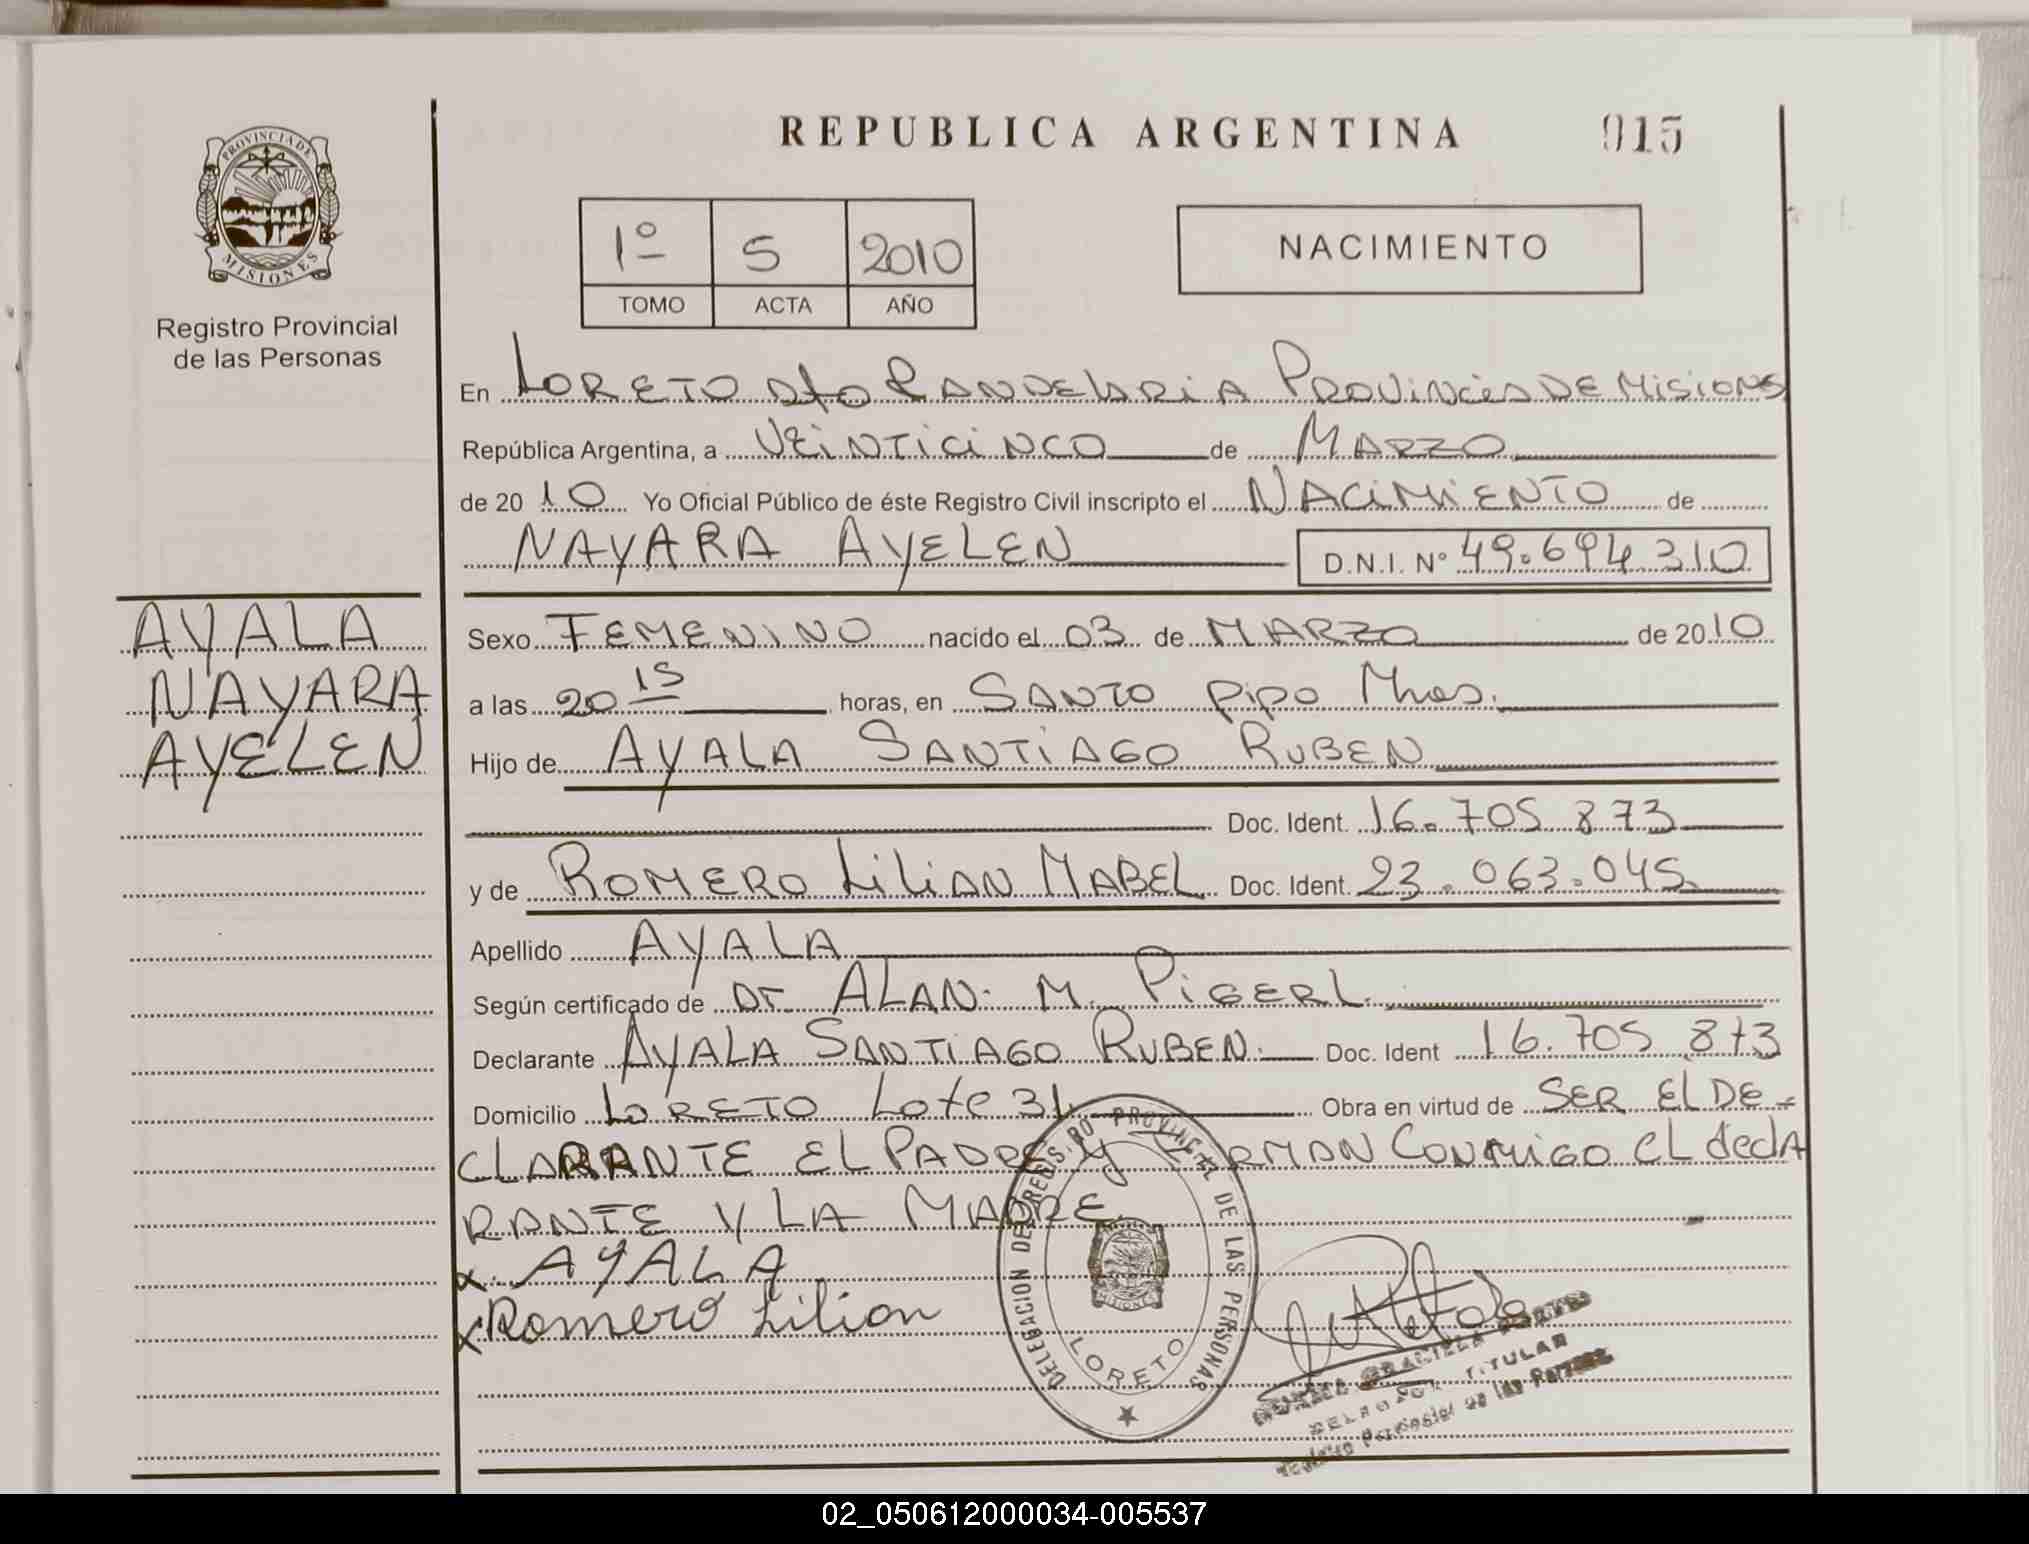 REPUBLICA ARGENTINA 915
PROVINCIA DE
MISIONES
Registro Provincial
de las Personas
1º 5 2010
TOMO ACTA AÑO
NACIMIENTO
En LORETO Dto CANDELARIA PROVINCIA DE MISIONES
República Argentina, a VEINTICINCO de MARZO
de 2010 Yo Oficial Público de éste Registro Civil inscripto el NACIMIENTO de
NAYARA AYELEN D.N.I. Nº 49.694.310
AYALA
NAYARA
AYELEN
Sexo FEMENINO nacido el 03 de MARZO de 2010
a las 20 15 horas, en SANTO PIPO Mnes.
Hijo de AYALA SANTIAGO RUBEN
Doc. Ident. 16.705.873
y de ROMERO LILIAN MABEL Doc. Ident. 23.063.045
Apellido AYALA
Según certificado de Dr ALAN. M. PIGERL.
Declarante AYALA SANTIAGO RUBEN. Doc. Ident 16.705 873
Domicilio LORETO Lote 31 Obra en virtud de SER EL DE-
CLARANTE EL PADRE y FIRMAN CONMIGO EL declA
RANTE Y LA MADRE
x AYALA
x Romero Lilian
DELEGACION DEL REGISTRO PROVINCIAL DE LAS PERSONAS
MISIONES
LORETO
GRACIELA
TITULAR
Provincial de las Personas
02_050612000034-005537